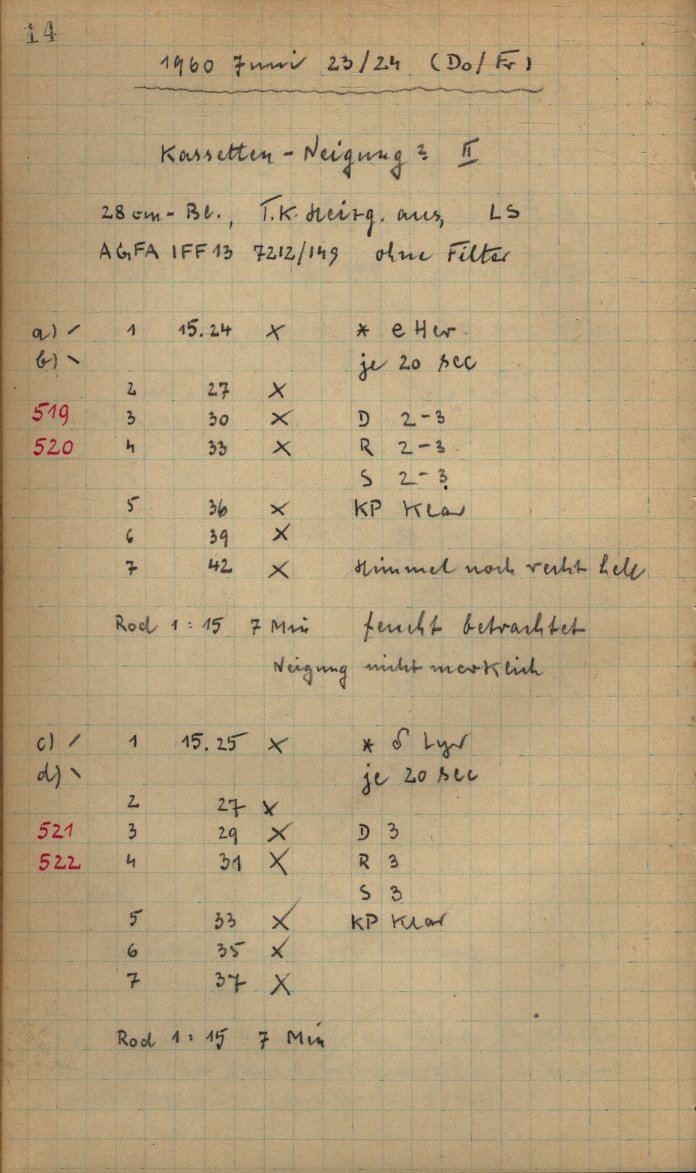 14
1960 Juni 23/24 (Do/Fr)
Kassetten-Neigung? II
28 cm-Bl., T.K. Heizg. aus, LS
AGFA IFF 13 7212/149 ohne Filter
a) / 1 15.24 × * e Her
b) \ je 20 sec
2 27 ×
519 3 30 × D 2-3
520 4 33 × R 2-3
S 2-3
5 36 × KP Klar
6 39 ×
7 42 × Himmel noch recht hell
Rod 1:15 7 Min feucht betrachtet
Neigung nicht merklich
c) / 1 15.25 × * δ Lyr
d) \ je 20 sec
2 27 ×
521 3 29 × D 3
522 4 31 × R 3
S 3
5 33 × KP Klar
6 35 ×
7 37 ×
Rod 1:15 7 Min